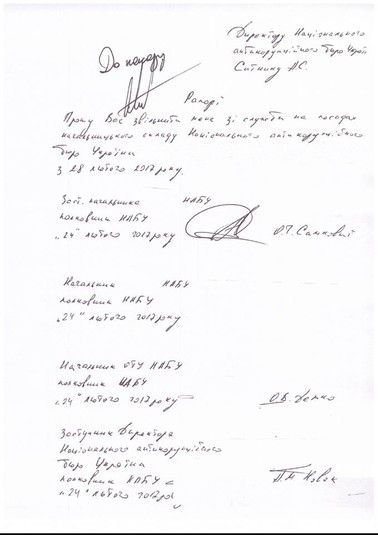 Директору Національного
антикорупційного бюро України
Ситнику А.С.
До наказу
Рапорт
Прошу Вас звільнити мене зі служби на посадах
начальницького складу Національного антикорупційного
бюро України
з 28 лютого 2017 року.
Заст. начальника НАБУ
полковник НАБУ
„24" лютого 2017 року
Начальник НАБУ
полковник НАБУ
„24" лютого 2017 року
Начальник ОТУ НАБУ
полковник НАБУ
„24" лютого 2017 року
Заступник Директора
Національного антикорупційного
бюро України
полковник НАБУ
„24" лютого 2017р